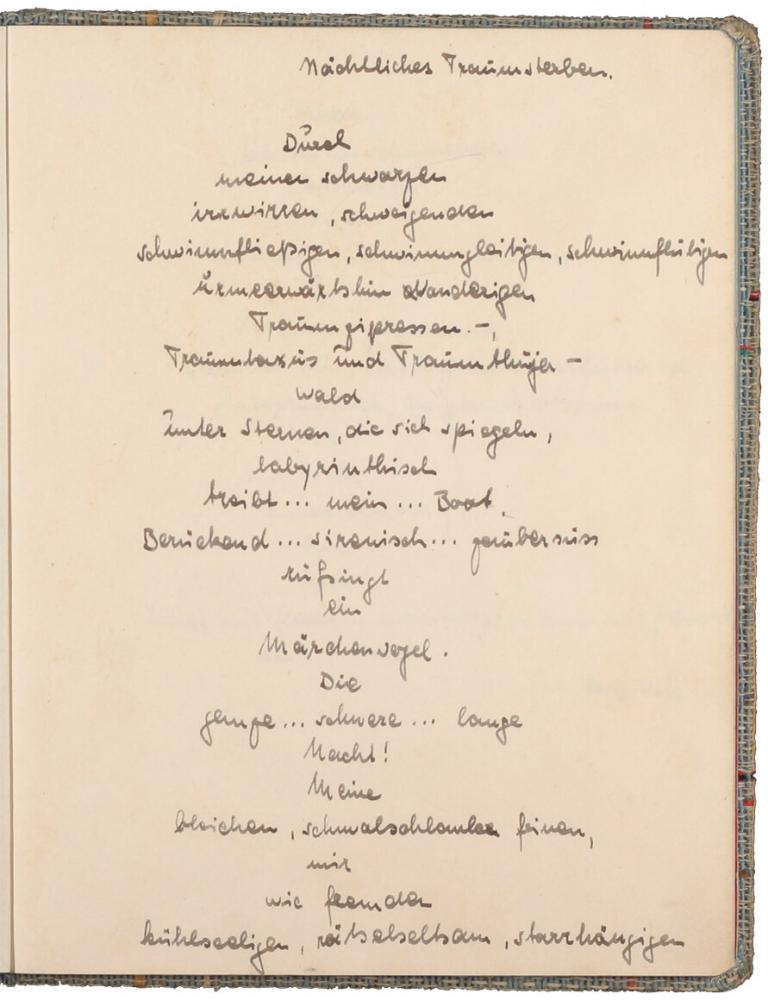 Nächtliches Traumsterben.
Durch
meinen schwarzen
irrwirren, schweigenden
schwimmfließigen, schwimmgleitigen, schwimmflutigen
urmeerwärtshin
Traumzipressen. -,
Traumtaxus und Traumthuja -
wald
unter Sternen, die sich spiegeln,
labyrinthisch
treibt ... mein ... Boot.
Berückend ... sirenisch ... zaubersüss
rufsingt
ein
Märchenvogel.
Die
ganze ... schwere ... lange
Nacht!
Meine
bleichen, schmalschlanken feinen,
mir
wie fremden
kühlseeligen, rätselseltsam, starrhängigen